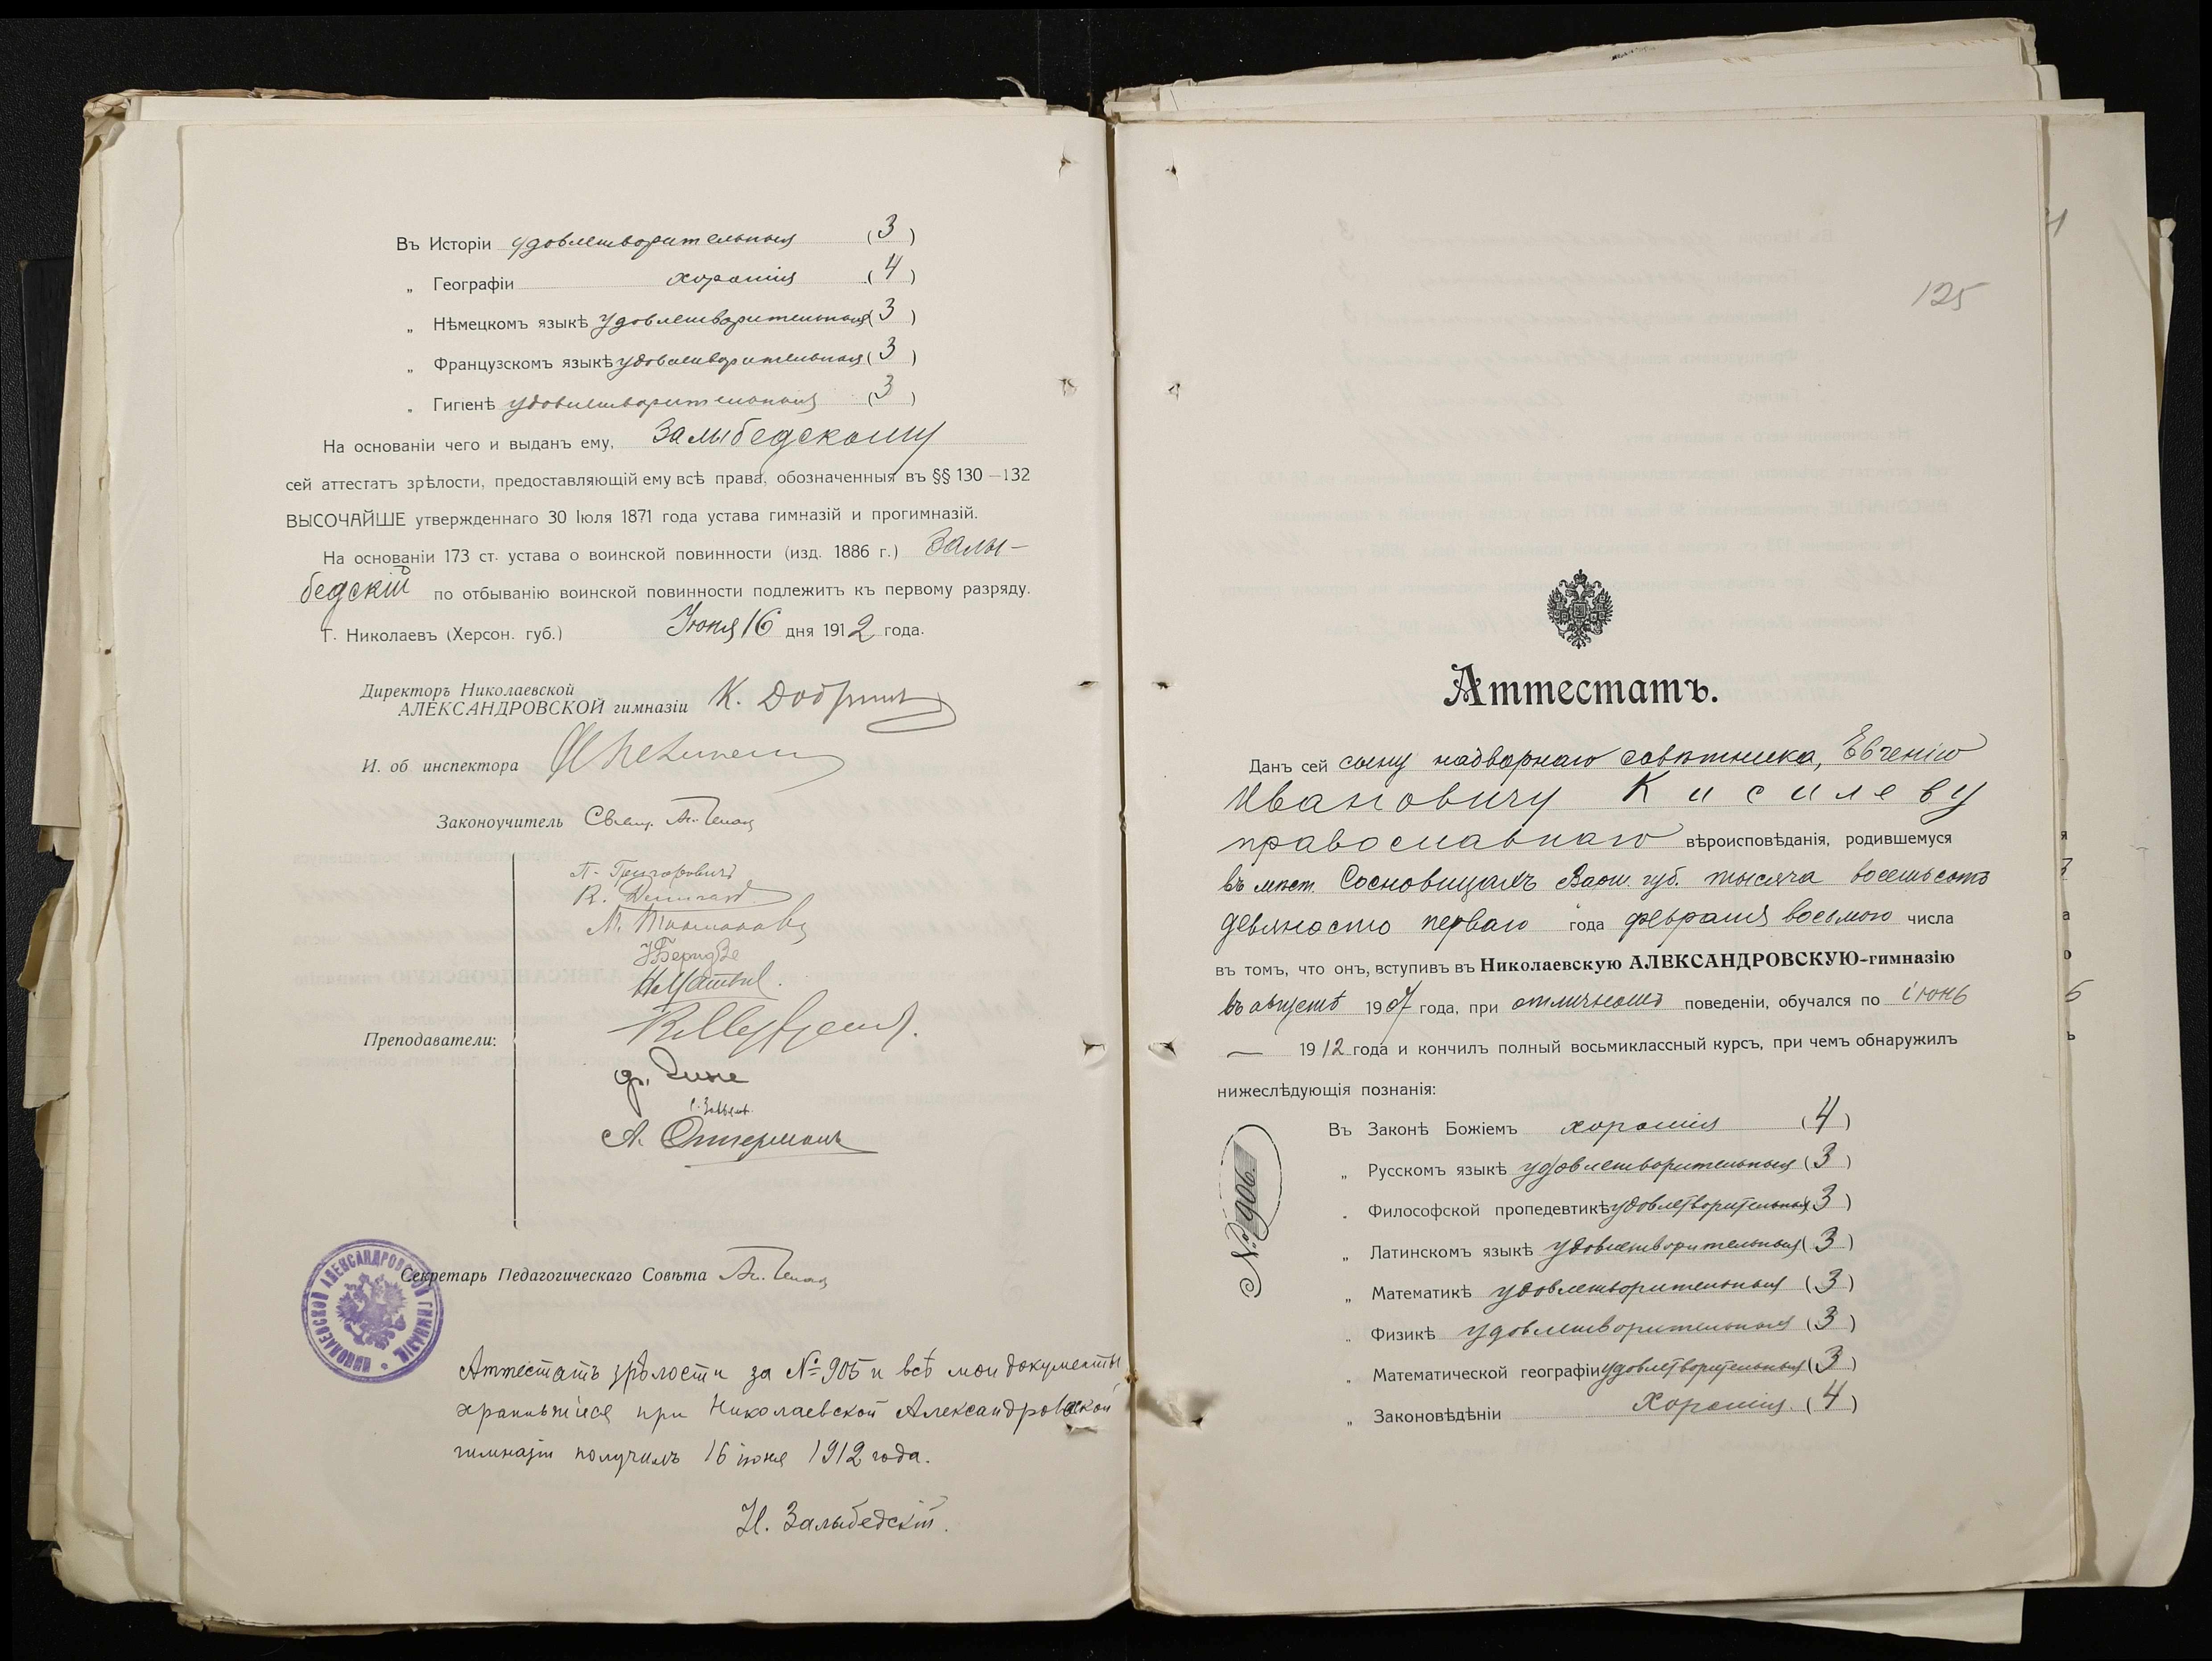 Въ Исторіи удовлетворительныя (3)
„ Географіи хорошія (4)
„ Нѣмецкомъ языкѣ удовлетворительныя (3)
„ Французскомъ языкѣ удовлетворительныя (3)
„ Гигіенѣ удовлетворительныя (3)
На основаніи чего и выданъ ему, Залыбедскому
сей аттестатъ зрѣлости, предоставляющій ему всѣ права, обозначенныя въ §§ 130—132
ВЫСОЧАЙШЕ утвержденнаго 30 Іюля 1871 года устава гимназій и прогимназій.
На основаніи 173 ст. устава о воинской повинности (изд. 1886 г.) Залы-
бедскій по отбыванію воинской повинности подлежитъ къ первому разряду.
Г. Николаевъ (Херсон. губ.) Іюня 16 дня 1912 года.
Директоръ Николаевской
АЛЕКСАНДРОВСКОЙ гимназіи К.
И. об инспектора
Законоучитель Свящ.
П. Григоровичъ
Н.
Преподаватели:
А.
Секретарь Педагогическаго Совѣта
НИКОЛАЕВСКОЙ АЛЕКСАНДРОВСКОЙ ГИМНАЗІИ
Аттестатъ зрѣлости за № 905 и всѣ мои документы
хранившіеся при Николаевской Александровской
гимназіи получилъ 16 іюня 1912 года.
Н. Залыбедскій.
125
Аттестатъ.
Данъ сей сыну надворнаго совѣтника, Евгенію
Ивановичу Киселеву
православнаго вѣроисповѣданія, родившемуся
въ мѣст. Сосновицахъ Варш. губ. тысяча восемьсотъ
девяносто перваго года февраля восьмого числа
въ томъ, что онъ, вступивъ въ Николаевскую АЛЕКСАНДРОВСКУЮ-гимназію
въ августѣ 1907 года, при отличномъ поведеніи, обучался по іюнь
— 1912 года и кончилъ полный восьмиклассный курсъ, при чемъ обнаружилъ
нижеслѣдующія познанія:
Въ Законѣ Божіемъ хорошія (4)
„ Русскомъ языкѣ удовлетворительныя (3)
„ Философской пропедевтикѣ удовлетворительныя (3)
„ Латинскомъ языкѣ удовлетворительныя (3)
„ Математикѣ удовлетворительныя (3)
„ Физикѣ удовлетворительныя (3)
„ Математической географіи удовлетворительныя (3)
„ Законовѣдѣніи хорошія (4)
№ 906.